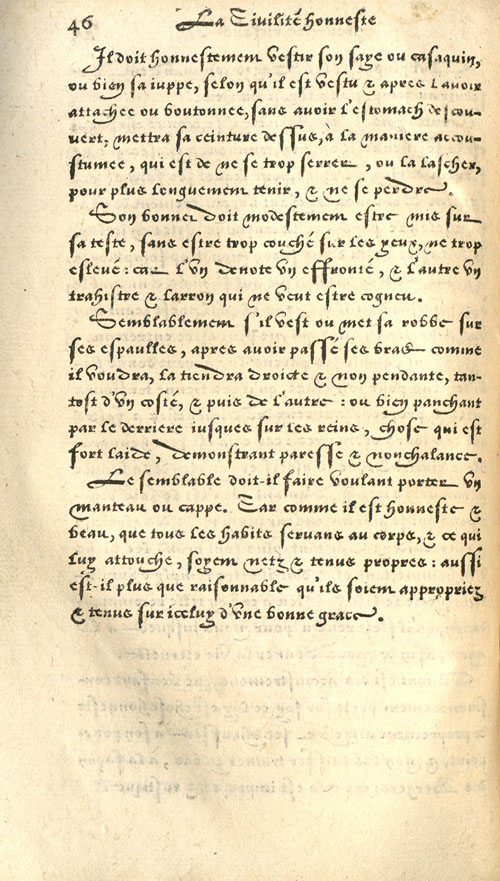 46 La Civilité honneste
Il doit honnestement vestir son saye ou casaquin,
ou bien sa iuppe, selon qu'il est vestu & apres l'avoir
attachee ou boutonnee, sans avoir l'estomach descou-
vert, mettra sa ceinture dessus, à la maniere accou-
stumee, qui est de ne se trop serrer, ou la lascher,
pour plus longuement tenir, & ne se perdre.
Son bonnet doit modestement estre mis sur
sa teste, sans estre trop couché sur les yeux, ne trop
eslevé : car l'vn denote vn effronté, & l'autre vn
trahistre & larron qui ne veut estre cogneu.
Semblablement s'il vest ou met sa robbe sur
ses espaulles, apres avoir passé ses bras comme
il voudra, la tiendra droicte & non pendante, tan-
tost d'vn costé, & puis de l'autre : ou bien panchant
par le derriere iusques sur les reins, chose qui est
fort laide, demonstrant paresse & nonchalance.
Le semblable doit-il faire voulant porter vn
manteau ou cappe. Car comme il est honneste &
beau, que tous les habits servans au corps, & ce qui
luy attouche, soyent netz & tenus propres : aussi
est-il plus que raisonnable qu'ils soient appropriez
& tenus sur iceluy d'vne bonne grace.